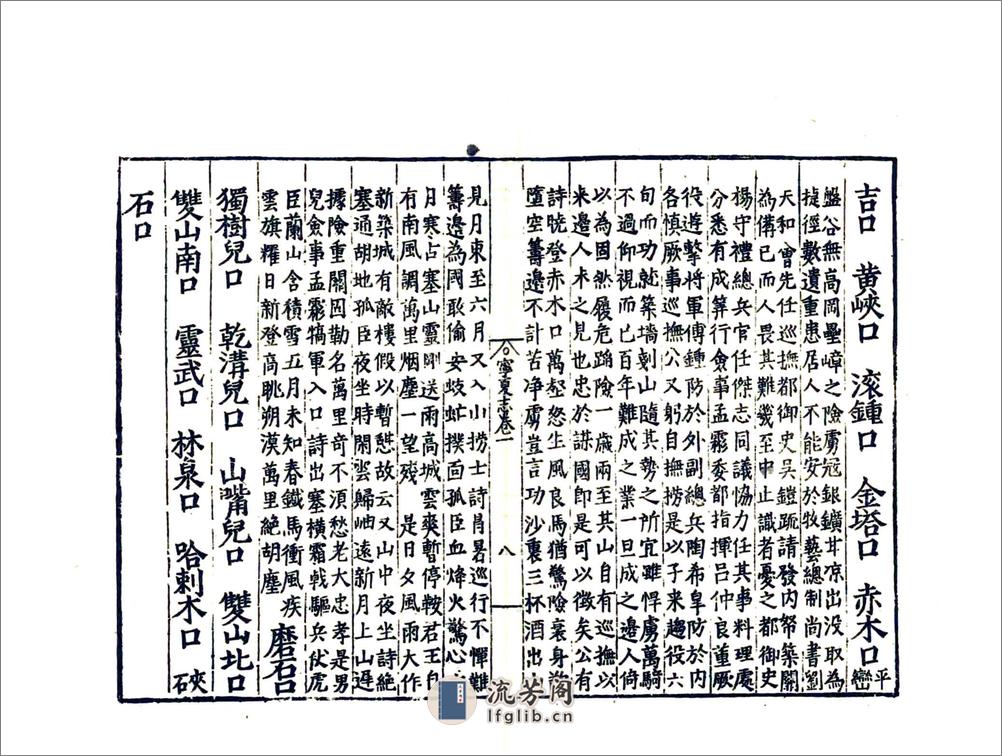 吉口 黄峽口 滚鍾口 金塔口 赤木口 平巒
盤谷無高岡疊嶂之險虜冠銀鑛甘凉出没取為
捷徑數遺重患居人不能安於牧藝總制尚書劉
天和曾先任巡撫都御史吳鎧疏請發内帑築關
為備已而人畏其難幾至中止識者憂之都御史
楊守禮總兵官任傑志同議協力任其事料理處
分悉有成筭行僉事孟霦委都指揮吕仲良董厥
役遊擊將軍傅鍾防於外副總兵陶希臯防於内
各慎厥事巡撫公又躬自撫撈是以子来趨役六
旬而功就築墻剗山隨其勢之所宜雖悍虜萬騎
不過仰視而已百年難成之業一旦成之邊人倚
以為固然履危蹈險一歲兩至其山自有巡撫以
來邊人未之見也忠於謀國即是可以徵矣公有
詩曉登赤木口萬壑怒生風良馬猶驚險衰身
墮空籌邊不計苦净虜豈言功沙裏三杯酒出山
寧夏志卷一 八
見月東至六月又入山撈士詩肖暑巡行不憚難
籌邊為國敢偷安歧虻撲面孤臣血烽火驚心
日寒占塞山靈剛送雨高城雲爽暫停鞍君王自
有南風調萬里烟塵一望殘 是日夕風雨大作
新築城有敵樓假以暫憇故云又山中夜坐詩絶
塞通胡地孤臣夜坐時閑雲歸岫遠新月上山遲
據險重關固勒名萬里奇不湏愁老大忠孝是男
兒僉事孟霦犒軍入口詩出塞横霜戟驅兵伏虎
臣蘭山含積雪五月未知春鐵馬衝風疾
雲旗耀日新登高眺朔漠萬里絶胡塵 磨石
獨樹兒口 乾溝兒口 山嘴兒口 雙山北口
雙山南口 靈武口 林泉口 哈剌木口 硤
石口
流芳阁
lfglib.cn